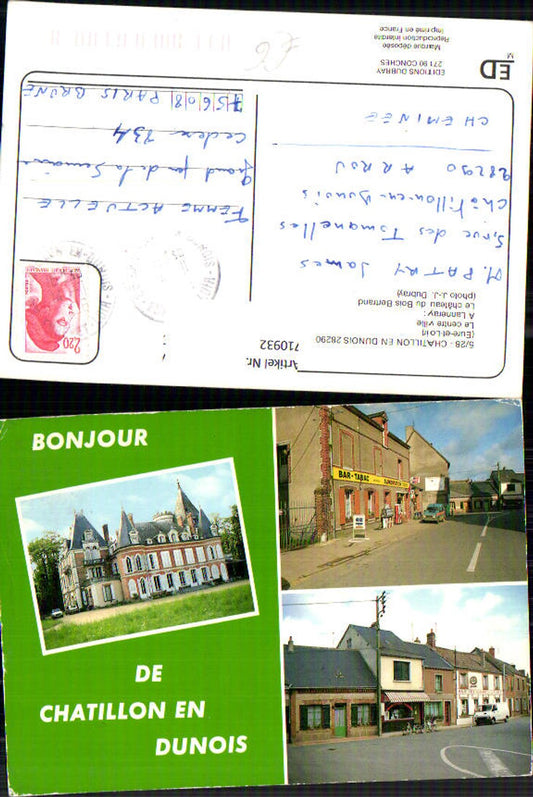 ED
M
EDITIONS DUBRAY
27190 CONCHES
Marque déposée
Reproduction interdite
Imprimé en France
£6
5/28 - CHATILLON EN DUNOIS 28290
(Eure-et-Loir)
Le centre ville
A Lanneray:
Le château du Bois Bertrand
(photo J.-J. Dubray)
Artikel Nr.
710932
M. PATRY James
5, rue des Tournelles
Châtillon-en-Dunois
28290 ARROU
CHEMINÉE
FEMME ACTUELLE
Grand jeu de la Semaine
Cedex 734
75608 PARIS BRUNE
2,20
BONJOUR
DE
CHATILLON EN
DUNOIS
BAR-TABAC